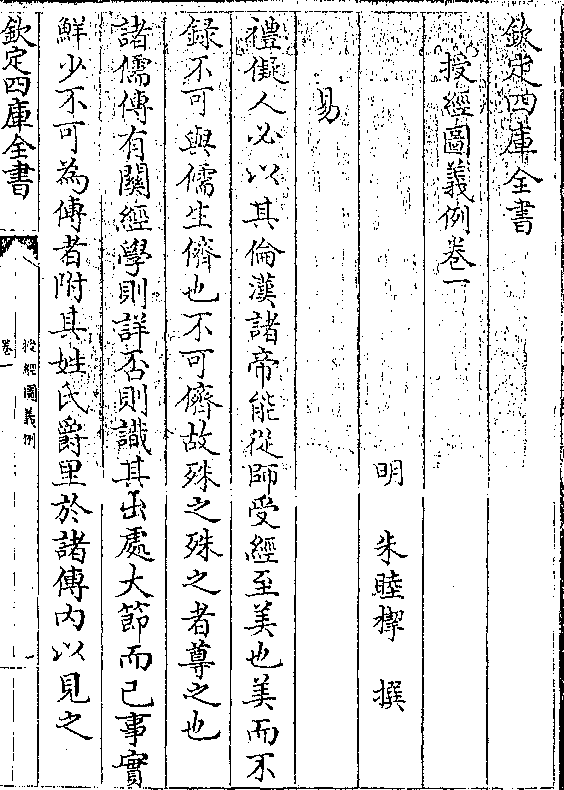 欽定四庫全書
授經圖義例卷一
明 朱睦㮮 撰
易
禮儗人必以其倫漢諸帝能從師受經至美也美而不
録不可與儒生儕也不可儕故殊之殊之者尊之也
諸儒傳有關經學則詳否則識其出處大節而已事實
鮮少不可為傳者附其姓氏爵里於諸傳内以見之
欽定四庫全書
授經圖義例
卷一